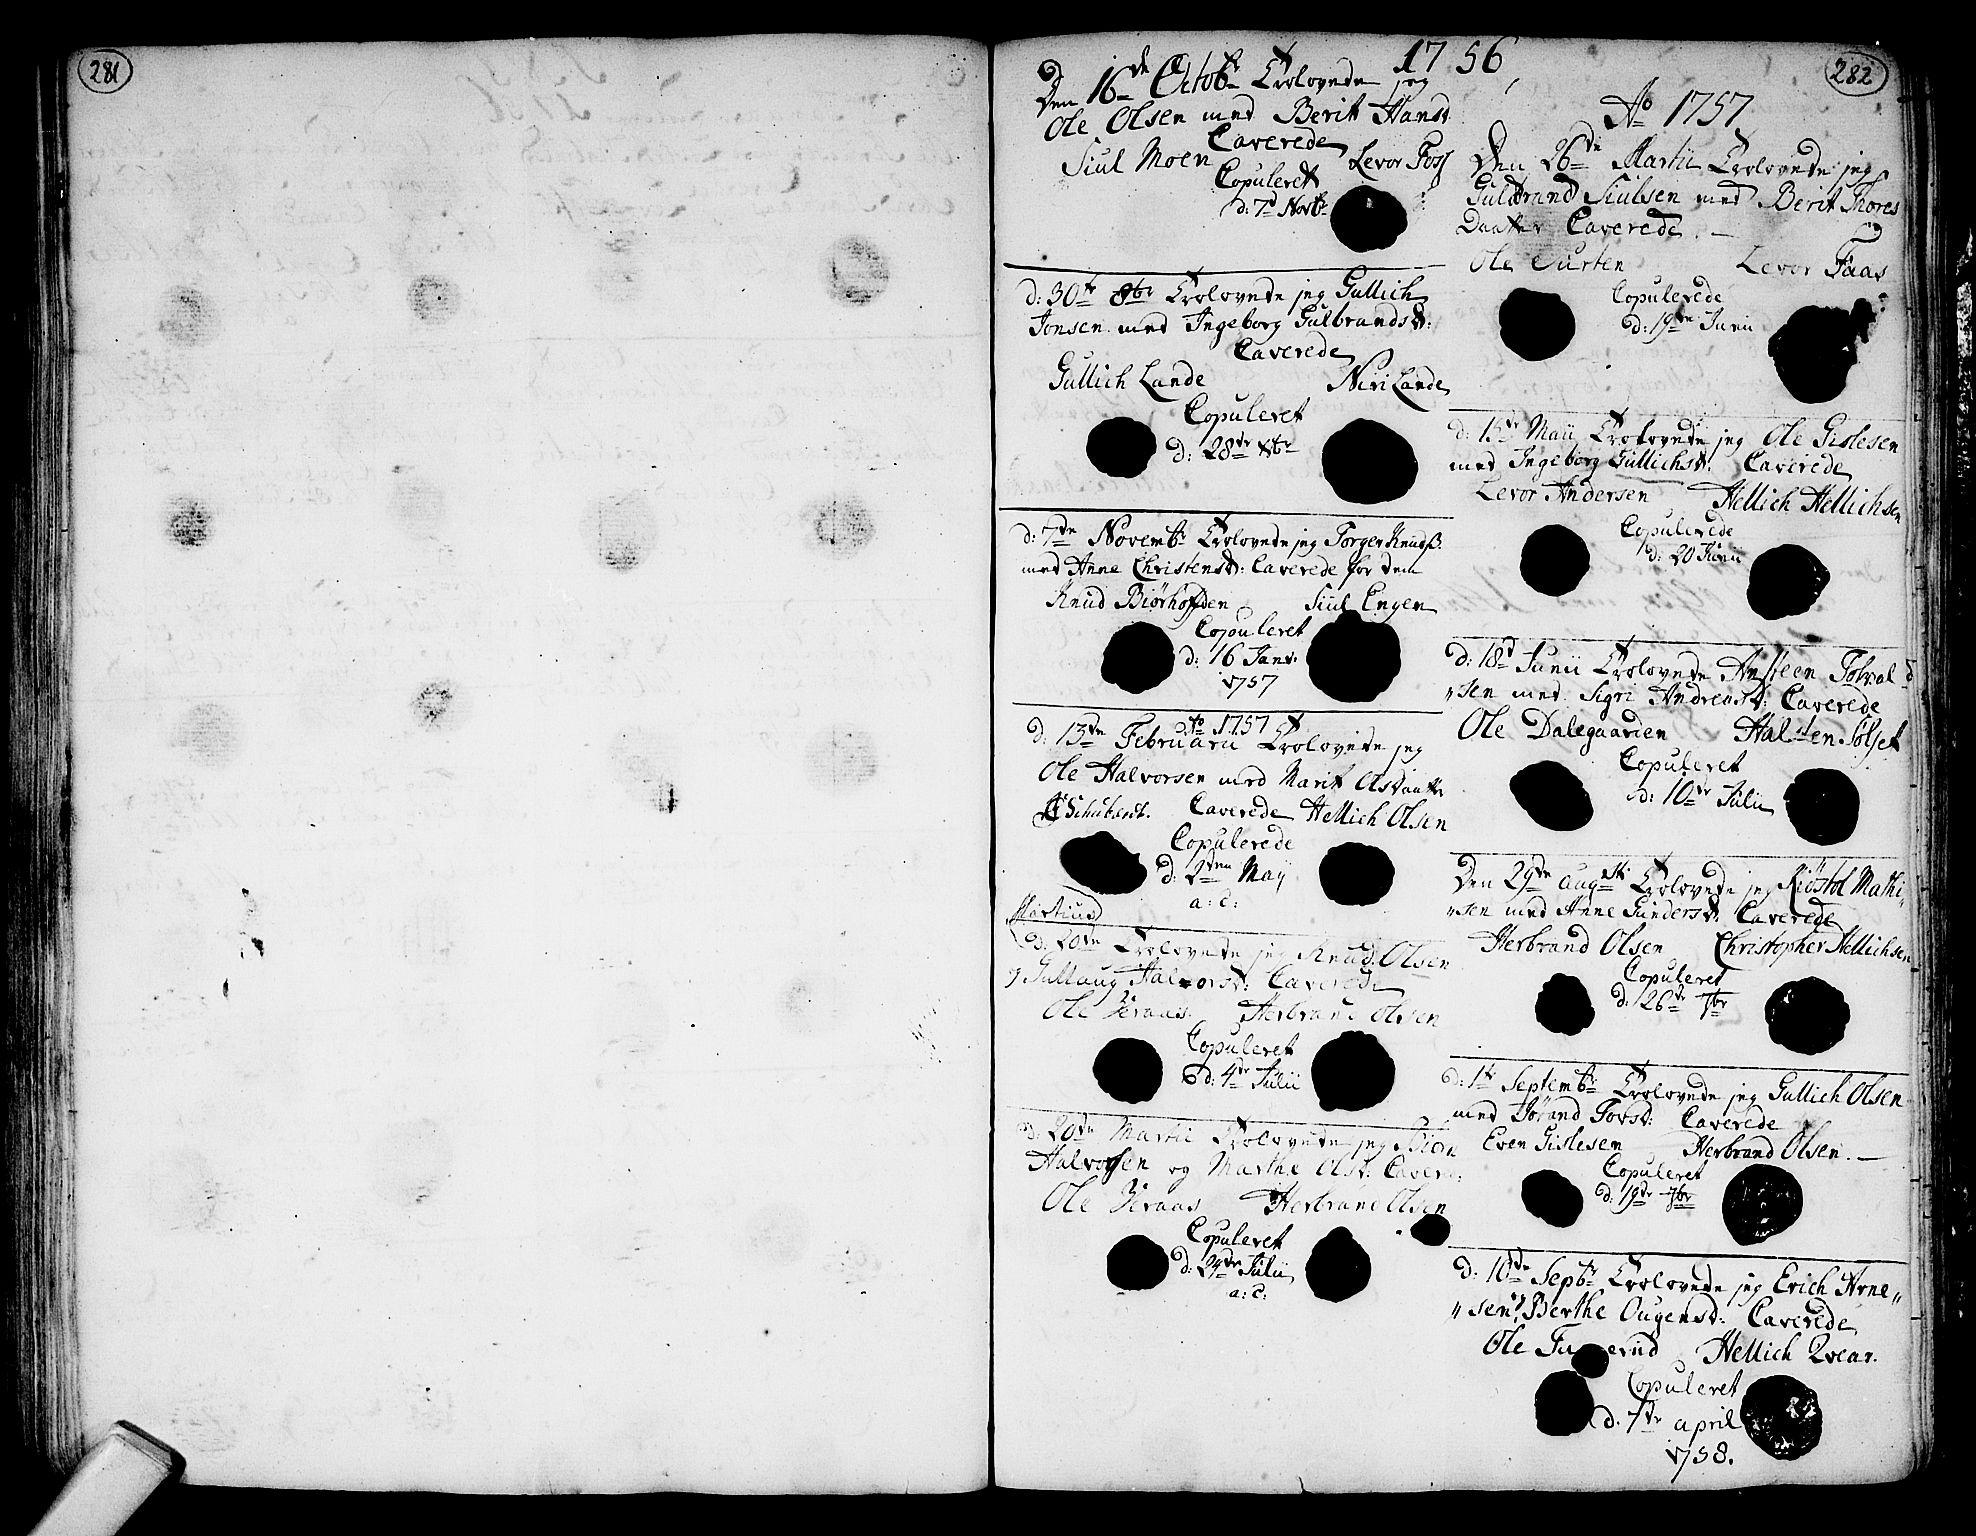 281
282
1756
Den 16de Octobr Trolovede jeg
Ole Olsen med Berit Hansd
Caverede
Siul Moen Levor Foss
Copuleret
d: 7d Novbr
d: 30te 8br Trolovede jeg Gullich
Jonsen med Ingeborg Gulbrandsd:
Caverede
Gullich Lande Niri Lande
Copuleret
d: 28de Xbr
d: 7de Novembr Trolovede jeg Torger Knudß.
med Anne Christensd: Caverede for dem
Knud Biørhofden Siul Engen
Copuleret
d: 16 Janr:
1757
Ao 1757
d: 13de Februarii Trolovede jeg
Ole Halvorsen med Marit Olsdaatter
Schubardt. Caverede Hellich Olsen
Copulerede
d: 2den May
a: c:
Martius
d: 20de Trolovede jeg Knud Olsen
og Gullaug Halvorsd: Caverede
Ole Beraas Herbrand Olsen
Copuleret
d: 4de Julii
d: 20de Martii Trolovede jeg Biørn
Halvorsen og Marthe Olsd: Cavere:
Ole Beraas Herbrand Olsen
Copuleret
d: 24de Julii
a: c:
Ao 1757
Den 26de Martii Trolovede jeg
Guldbrand Siulsen med Berit Thores
Daatter Caverede. —
Ole Surten Levor Faas
Copulerede
d: 19de Junii
d: 15de Maii Trolovede jeg Ole Gislesen
med Ingeborg Gullichsd: Caverede
Levor Andersen Hellich Hellichsen
Copulerede
d: 20 Junii
d: 18d Junii Trolovede Ansteen Tolvald
"sen med Sigri Andreasd: Caverede
Ole Dalegaarden Halsten Sølset
Copuleret
d: 10de Julii
Den 29de Augsti Trolovede jeg Kiøstol Mathi"
"sen med Anne Gundersd: Caverede
Herbrand Olsen Christopher Hellichsen
Copuleret
d: 26de 7br
d: 1te Septembr Trolovede jeg Gullich Olsen
med Jørand Torsd: Caverede
Even Gislesen Herbrand Olsen. —
Copuleret
d: 19de 7br
d: 10de Septbr Trolovede jeg Erich Arne"
"sen og Berthe Ougensd: Caverede
Ole Hellich Qvear.
Copuleret
d: 7de april
1758.